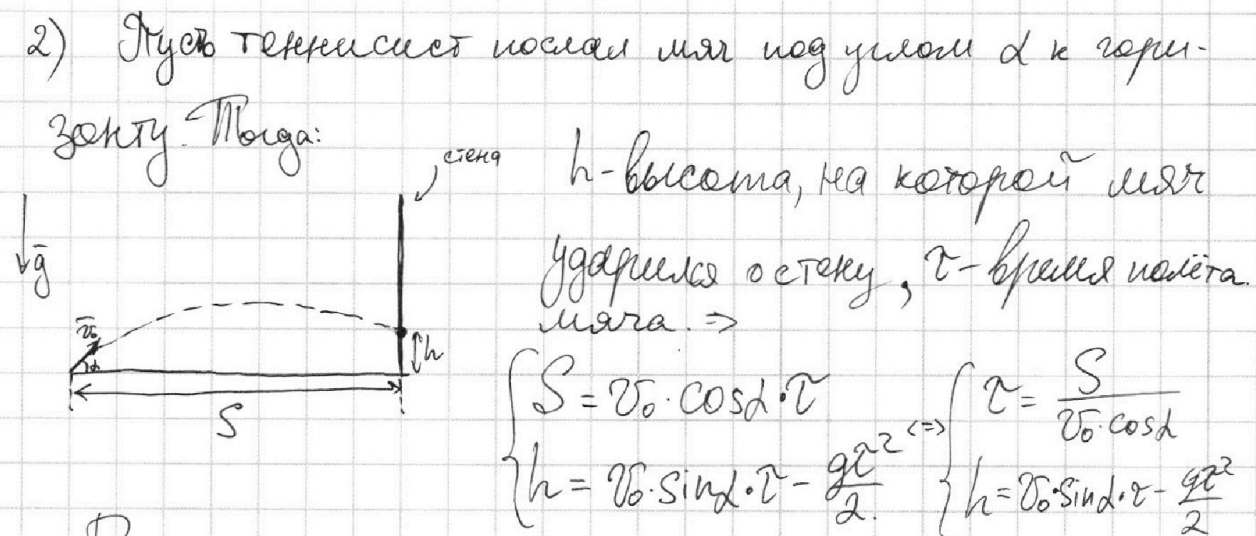 2) Пусть теннисист послал мяч под углом α к гори-
зонту. Тогда:
стена
h - высота, на которой мяч
ударился о стену, τ - время полёта
мяча. ⇒
g̅
v̅₀
α
h
S
S = v₀·cosα·τ
h = v₀·sinα·τ - gτ²/2.
<=>
τ = S/(v₀·cosα)
h = v₀·sinα·τ - gτ²/2